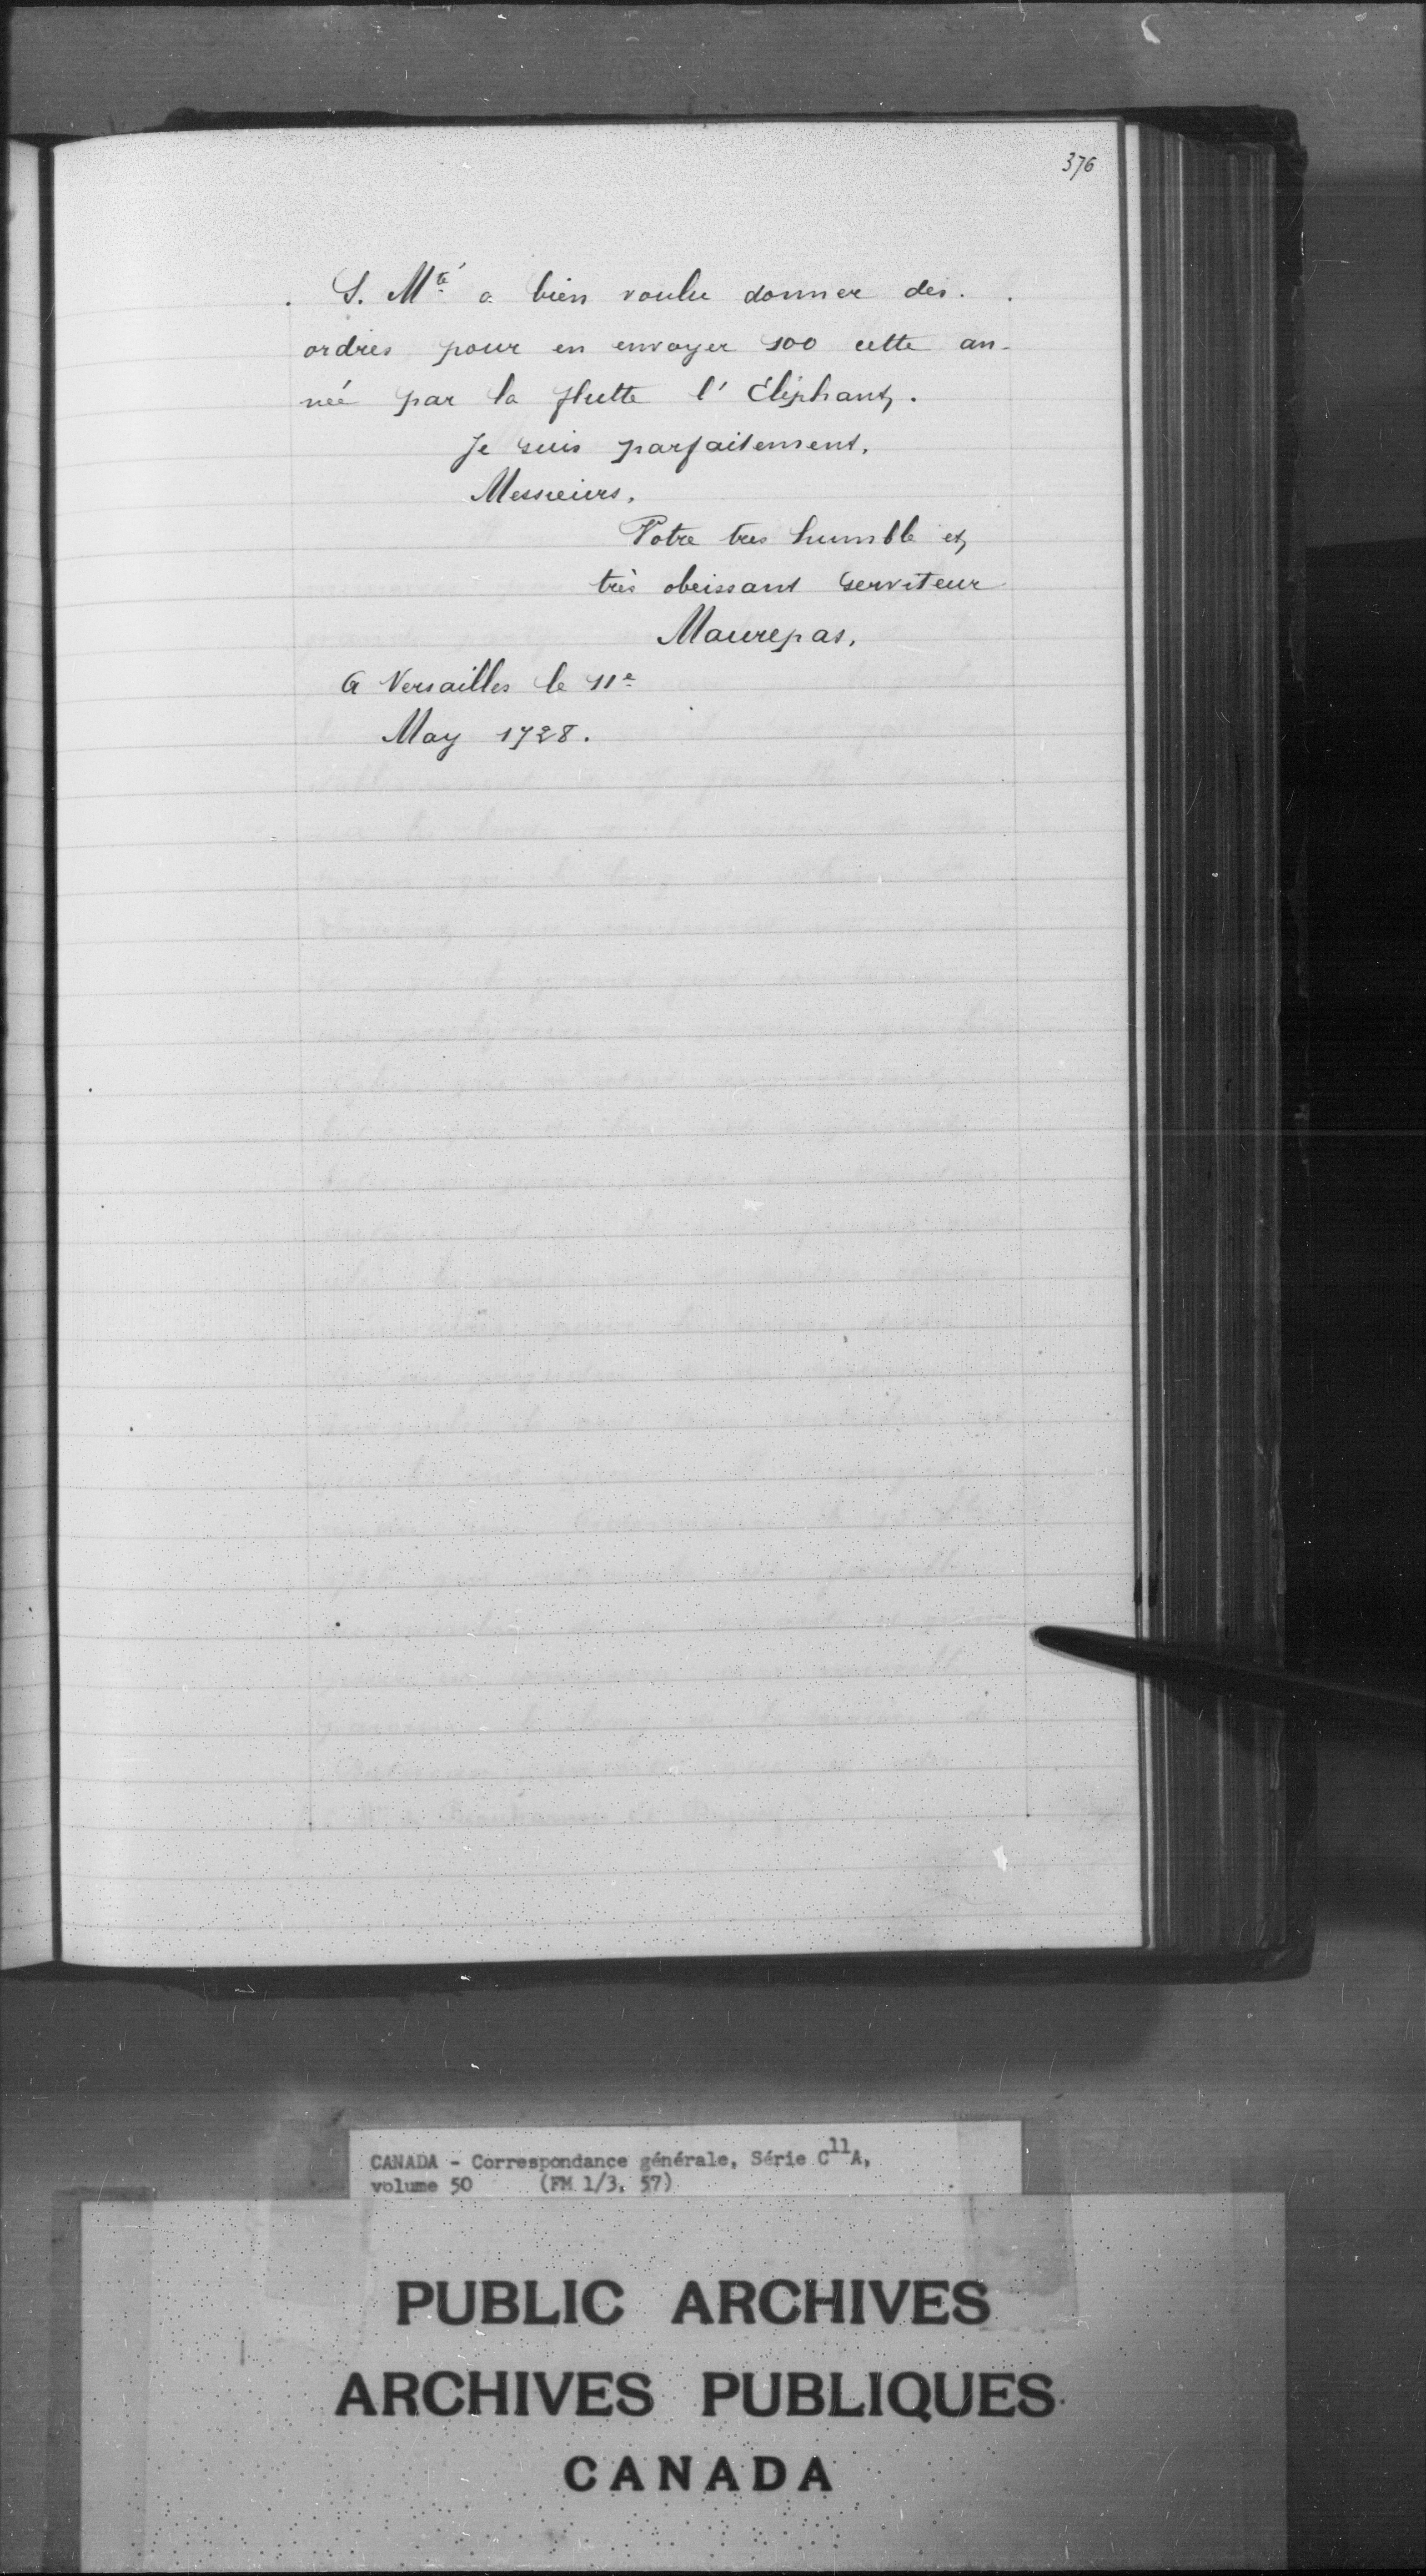 376
S. Mté a bien voulu donner des
ordres pour en envoyer 100 cette an-
née par la flutte l'Eléphant.
Je suis parfaitement,
Messieurs,
Votre tres humble et
très obeissant serviteur
Maurepas.
A Versailles le 11e
May 1728.
CANADA - Correspondance générale, Série C11A,
volume 50 (FM 1/3, 57)
PUBLIC ARCHIVES
ARCHIVES PUBLIQUES
CANADA